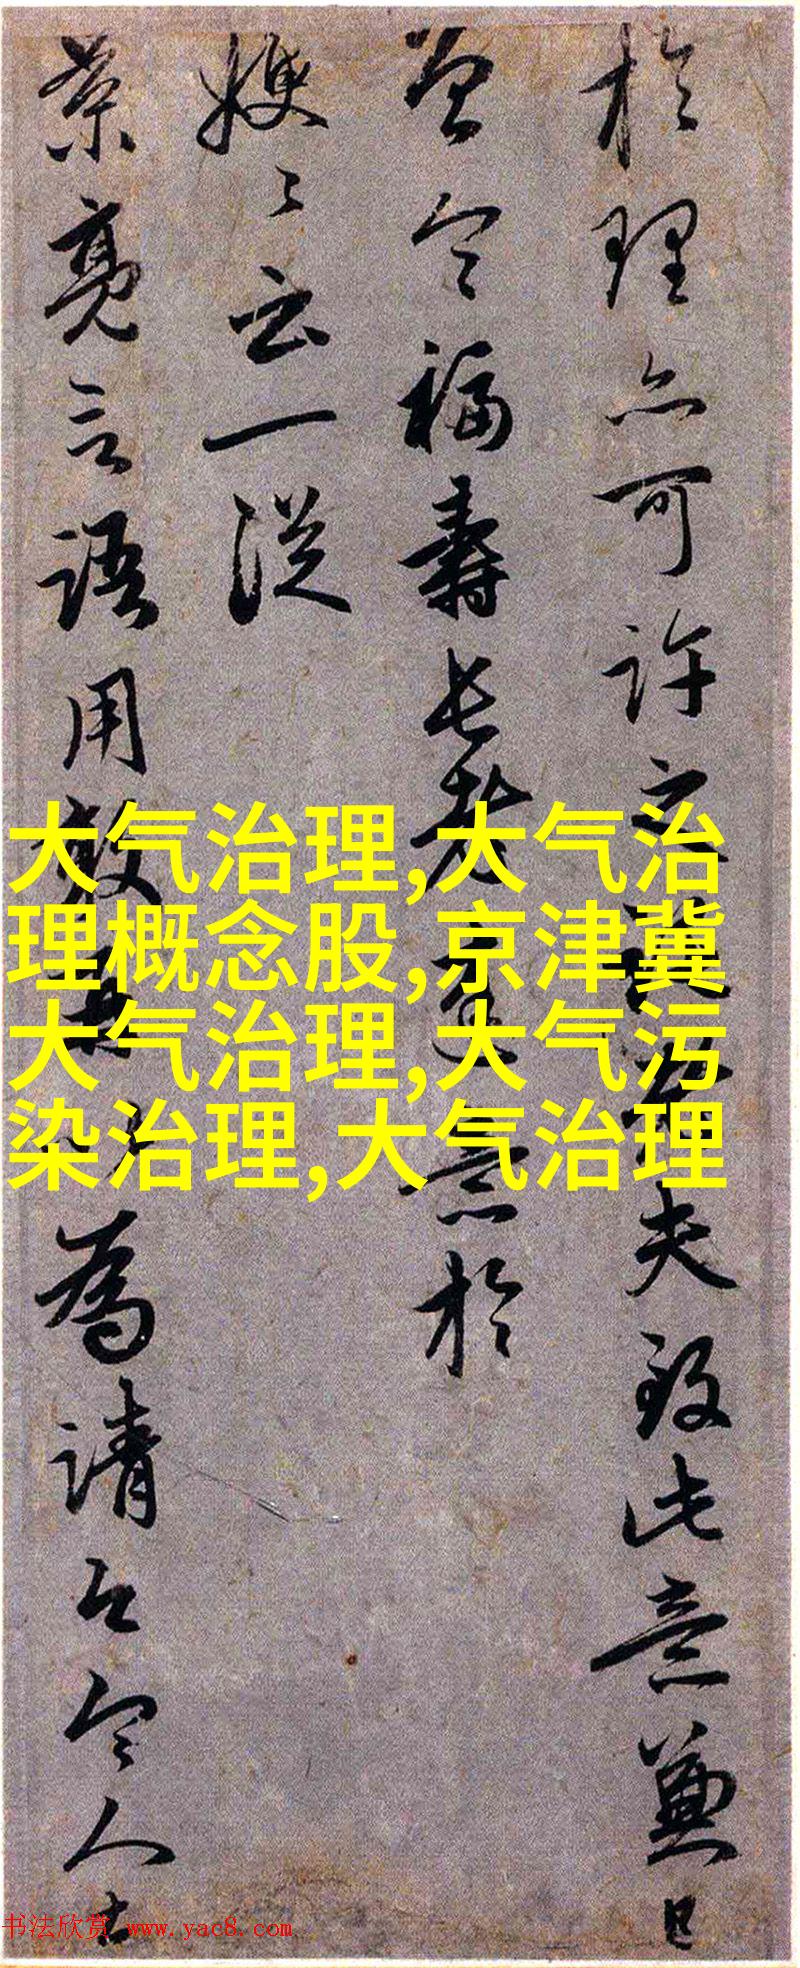 於理亦可許夫致此意兼
令福壽長老意於
嫂云一從
亮言語用為請令人
大气治理,大气治
理概念股,京津冀
大气治理,大气污
染治理,大气治理
书法欣赏 www.yac8.com